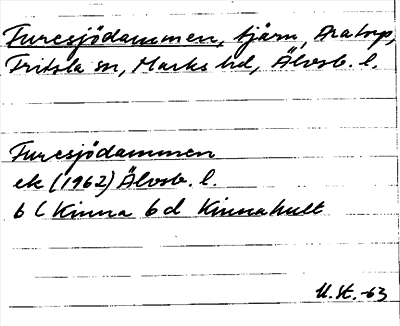 Furesjödammen, tjärn, Aratorp,
Fritsla sn, Marks hd, Älvsb. l.
Furesjödammen
ek (1962) Älvsb. l.
6 C Kinna 6 d Kinnahult
U. St. -63